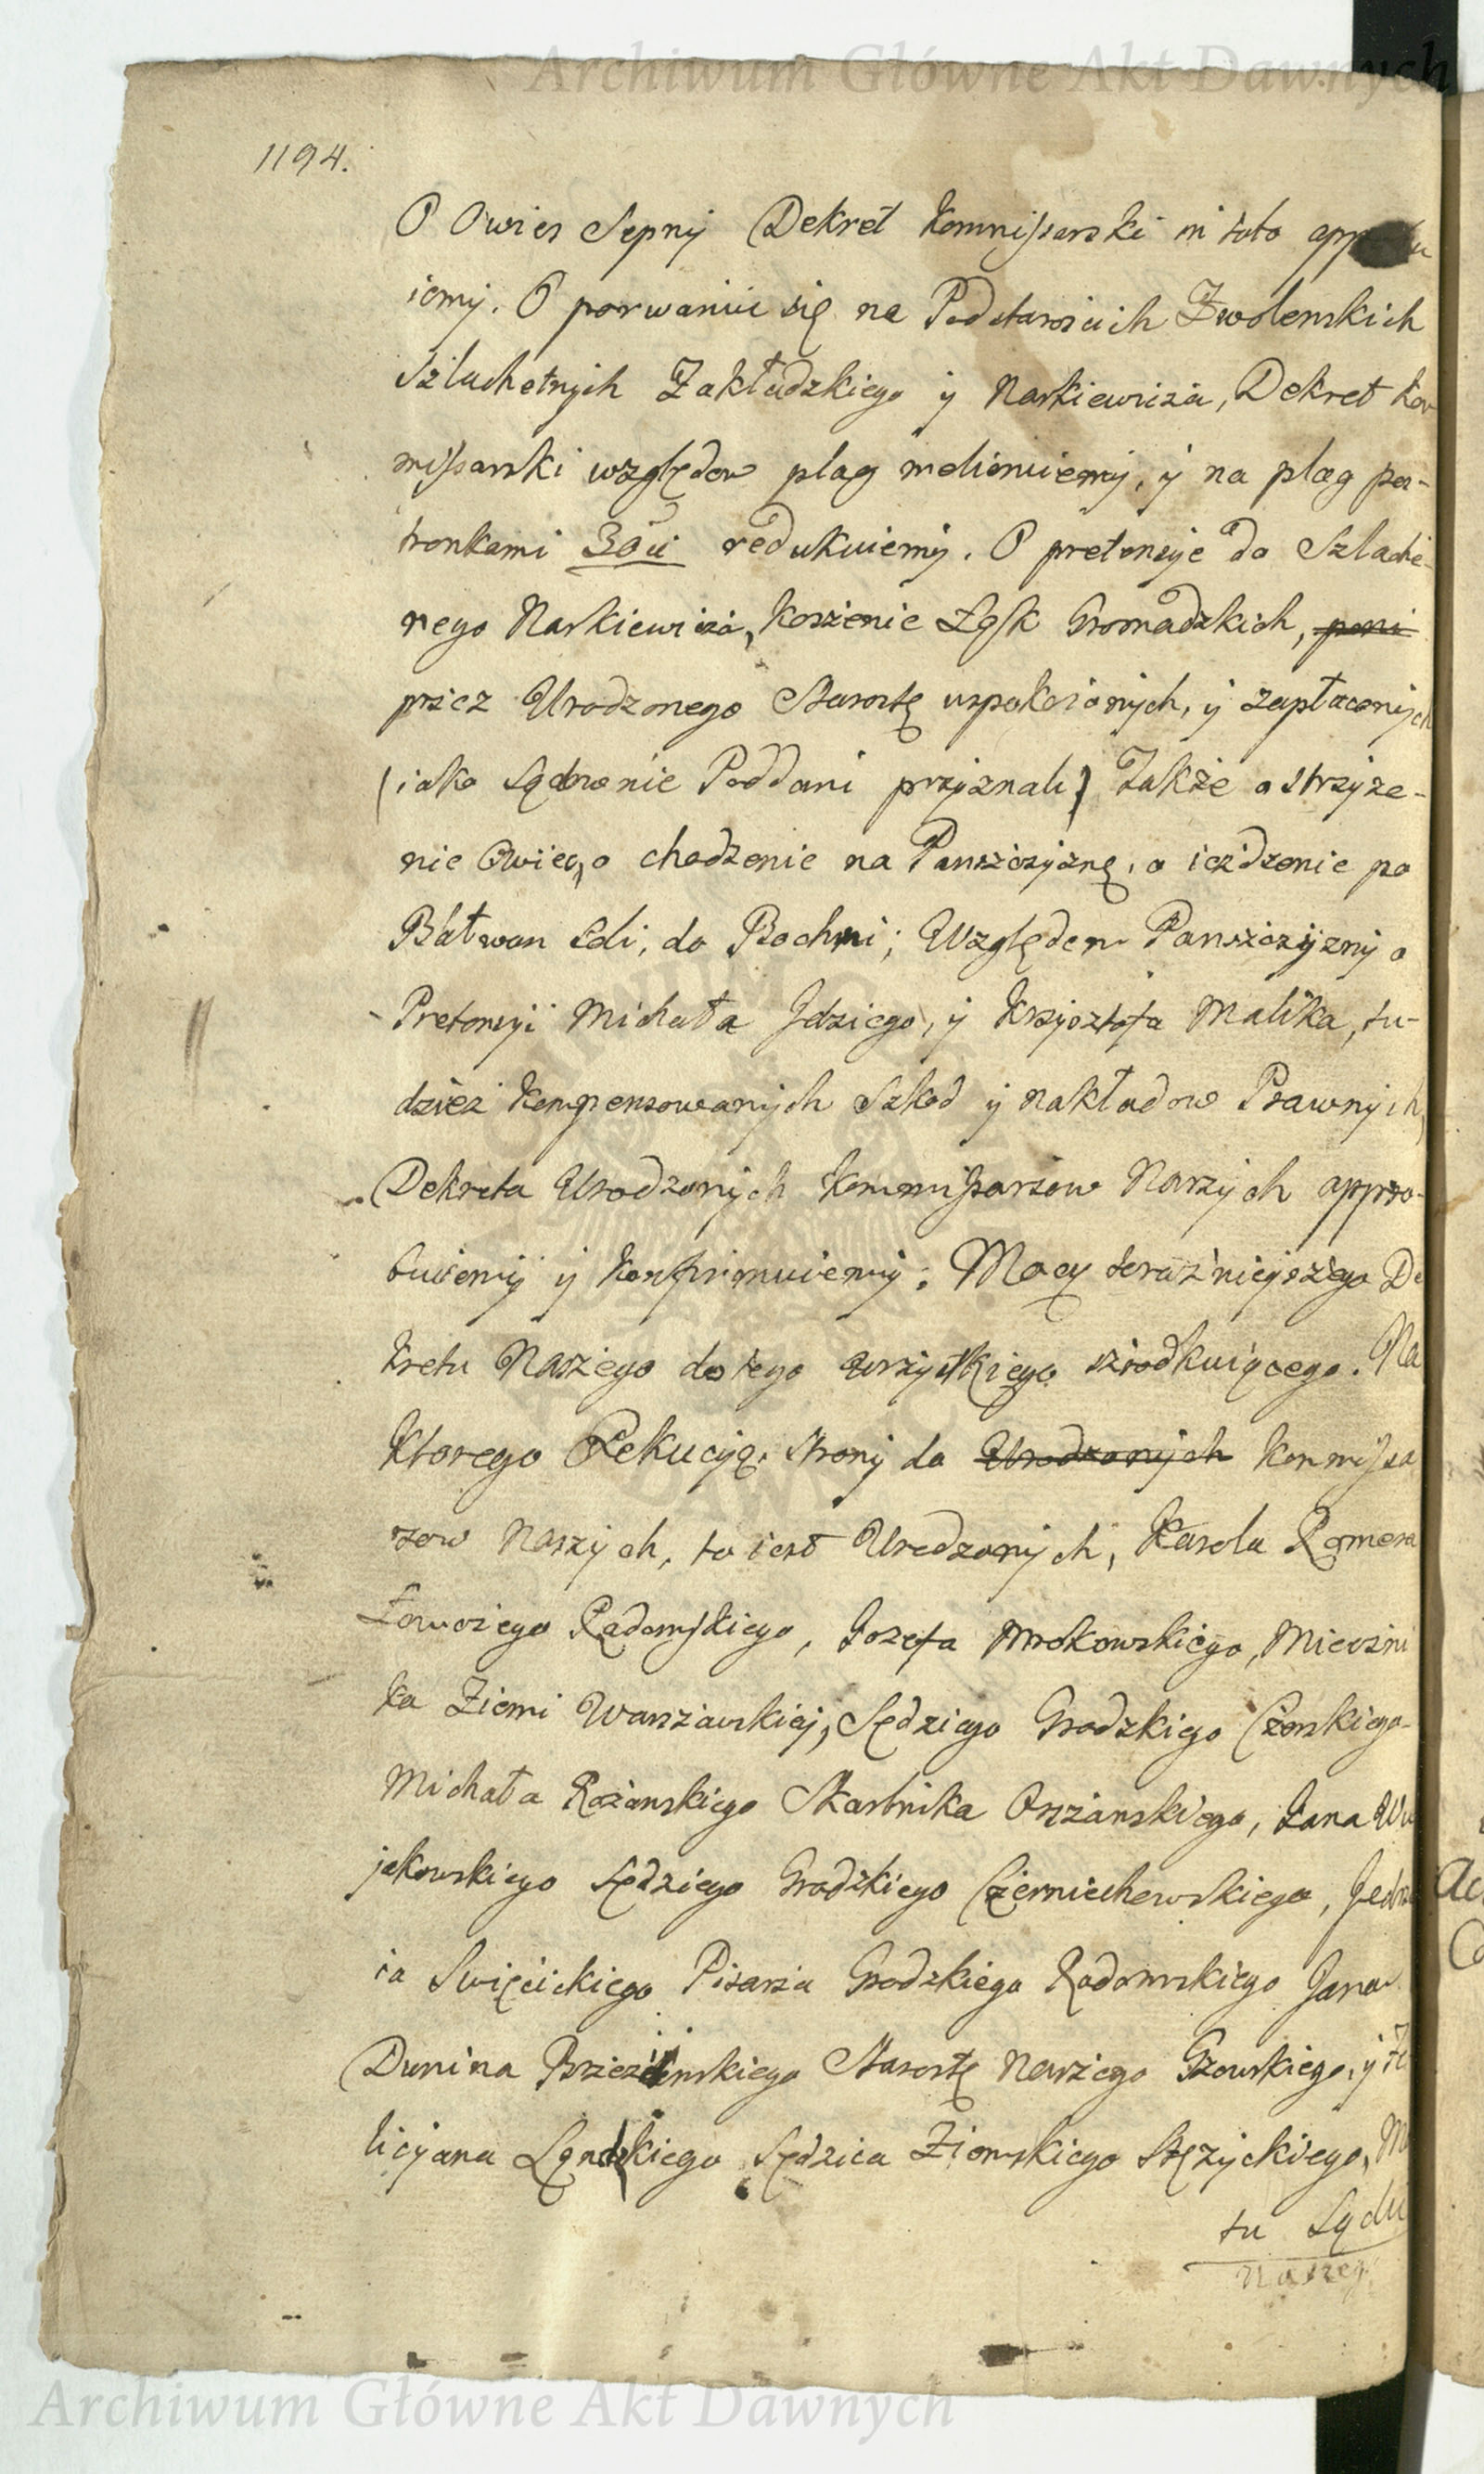 Archiwum Główne Akt Dawnych
1194.
O Owies Sepny Dekret Kommissarski in toto
iemy. O porwaniu się na Podstaroscich Zwolenskich
Szlachetnych Zakładzkiego y Narkiewicza, Dekret Kom
missarski względem plag melioruiemy, y na plag pos-
tronkami 30ci redukuiemy. O pretensye do Szlache-
nego Narkiewicza, Koszenie Łąk Gromadzkich, pani
przez Urodzonego Starostę uspokoionych, y zapłaconych
(iako Sądownie Poddani przyznali) Także o strzyże-
nie Owiec, o chodzenie na Panszczyznę, o ieżdzenie po
Bałwan Soli, do Bochni; Względem Panszczyzny o
Pretensyi Michała Jdziego, y Krzysztofa Malika, tu-
dzież kompensowanych Szkod y nakładow Prawnych,
Dekreta Urodzonych Kommissarzow Naszych appro-
buiemy y konfirmuiemy; Mocą teraznieyszego De
kretu Naszego do tego wszystkiego srzodkuiącego. Na
Ktorego Exekucyą, strony do Urodzonych Kommissa
rzow Naszych, to iest Urodzonych, Karola Romera
Łowczego Radomskiego, Jozefa Mrokowskiego, Mieczni
ka Ziemi Warszawskiej, Sędziego Grodzkiego Czerskiego
Michała Rożanskiego Skarbnika Orszanskiego, Jana Wu
jakowskiego Sędziego Grodzkiego Czerniechowskiego, Jędrze
ia Swięcickiego Pisarza Grodzkiego Radomskiego Jana
Dunina Brzezinskiego Starostę Naszego Gzowskiego, y Fe
licyana Lędzkiego Sędzica Ziemskiego Stężyckiego,
tu Sądu
Naszeg
Archiwum Główne Akt Dawnych